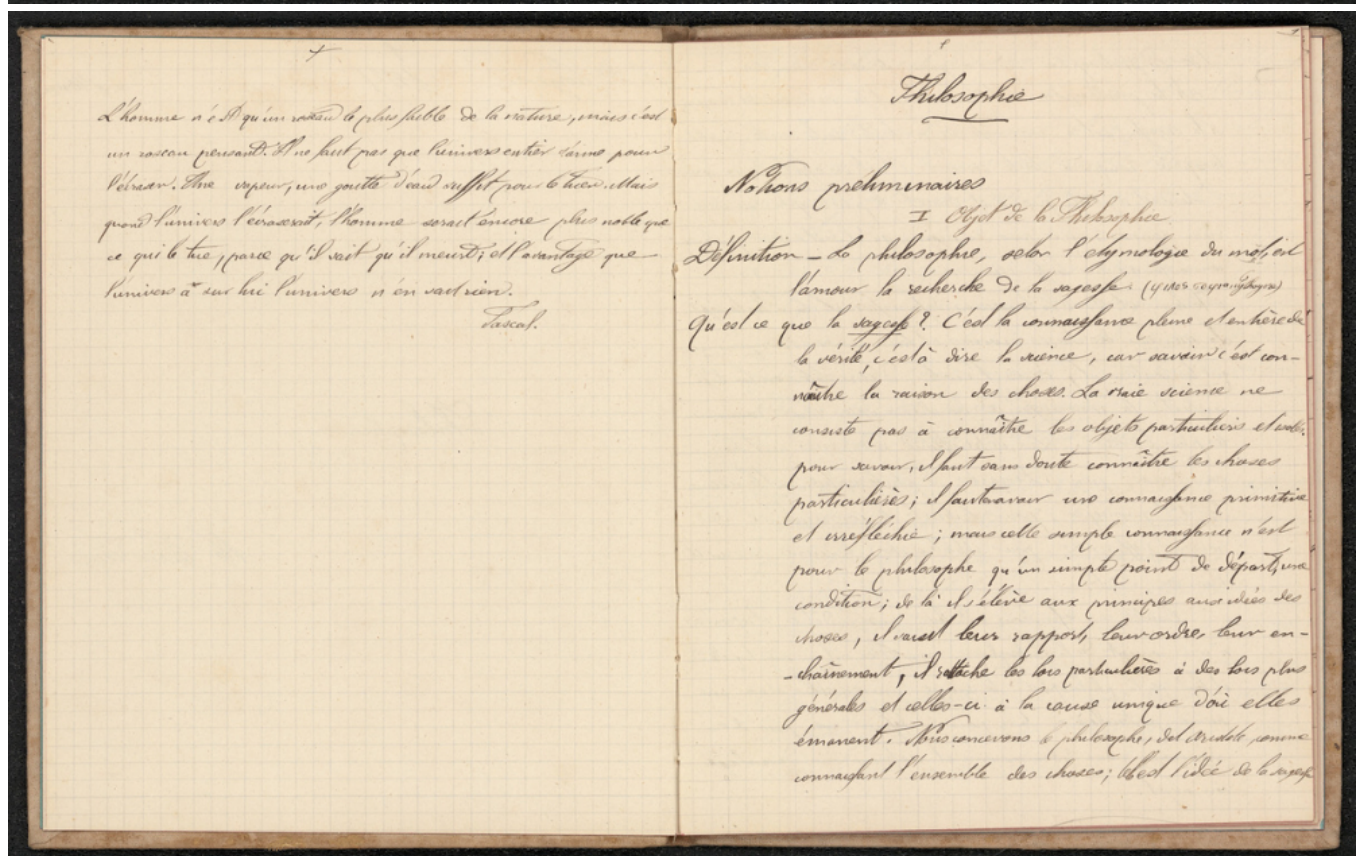 L'homme n'est qu'un roseau le plus faible de la nature, mais c'est
un roseau pensant. Il ne faut pas que l'univers entier s'arme pour
l'écraser. Une vapeur, une goutte d'eau suffit pour le tuer. Mais
quand l'univers l'écraserait, l'homme serait encore plus noble que
ce qui le tue, parce qu'il sait qu'il meurt; et l'avantage que
l'univers a sur lui l'univers n'en sait rien.
Pascal.
1
Philosophie
Notions préliminaires
I Objet de la Philosophie
Définition – La philosophie, selon l'étymologie du mot, est
l'amour la recherche de la sagesse
Qu'est ce que la sagesse? C'est la connaissance pleine et entière de
la vérité, c'est à dire la science, car savoir c'est con-
naître la raison des choses. La vraie science ne
consiste pas à connaître les objets particuliers et
pour savoir, il faut sans doute connaître les choses
particulières; il faut avoir une connaissance primitive
et irréfléchie; mais cette simple connaissance n'est
pour le philosophe qu'un simple point de départ, une
condition; de là il s'élève aux principes aux idées des
choses, il saisit leur rapport, leur ordre, leur en-
-chaînement, il rattache les lois particulières à des lois plus
générales et celles-ci à la cause unique d'où elles
émanent. Nous concevons le philosophe, dit Aristote, comme
connaissant l'ensemble des choses; telle est l'idée de la sagesse